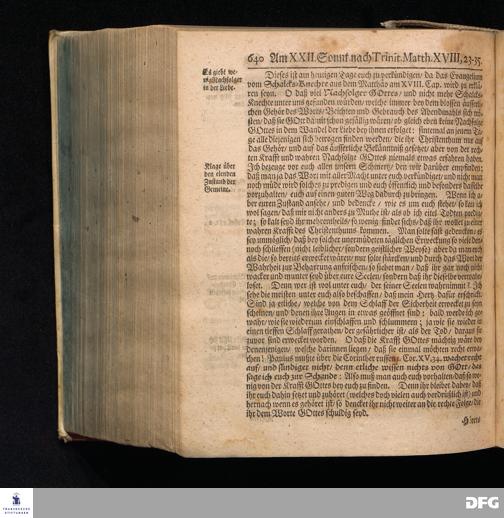 640 Am XXII. Sonnt. nach Trinit. Matth. XVIII, 23-35.
Es giebt we-
nig Nachfolger
in der Liebe.
Dieses ist am heutigen Tage euch zu verkündigen/ da das Evangelium
vom Schalcks-Knechte aus dem Matthäo am XVIII. Cap. wird zu erklä-
ren seyn. O daß viel Nachfolger GOttes/ und nicht mehr Schalcks-
Knechte unter uns gefunden würden/ welche immer bey dem blossen äusserli-
chen Gehör des Worts/ Beichten und Gebrauch des Abendmahls sich trö-
sten/ daß sie GOtt damit schon gefällig wären/ ob gleich eben keine Nachfolge
GOttes in dem Wandel der Liebe bey ihnen erfolget: sintemal an jenem Ta-
ge alle diejenigen sich betrogen finden werden/ die ihr Christenthum nur auf
das Gehör/ und auf das äusserliche Bekänntniß gesetzet/ aber von der rech-
ten Krafft und wahren Nachfolge GOttes niemals etwas erfahren haben.
Klage über
den elenden
Zustand der
Gemeine.
Ich bezeuge vor euch allen unsern Schmertz/ den wir darüber empfinden;
daß man ja das Wort mit aller Macht unter euch verkündiget/ und nicht man
noch müde wird solches zu predigen und euch öffentlich und besonders dasselbe
vorzuhalten/ euch auf einen guten Weg dadurch zu bringen. Wenn ich a-
ber euren Zustand ansehe/ und bedencke/ wie es um euch stehet/ so kan ich
wol sagen/ daß mir nicht anders zu Muthe ist/ als ob ich eitel Todten predig-
te; so kalt seyd ihr mehrentheils/ so wenig findet sichs/ daß ihr wollet zu einer
wahren Krafft des Christenthums kommen. Man solte fast gedencken/ es
sey unmöglich/ daß bey solcher unermüdeten täglichen Erweckung so viele des
noch schlieffen (nicht leiblicher/ sondern geistlicher Weyse) aber da man euch
als die/ so bereits erwecket wären/ nur solte stärcken/ und durch das Wort der
Wahrheit zur Beharrung anfrischen/ so siehet man/ daß ihr gar noch nicht
wacker und munter seyd über eure Seelen/ sondern daß ihr dieselbe vernach-
loset. Denn wer ist wol unter euch/ der seiner Seelen wahrnimmt? Ich
sehe die meisten unter euch also beschaffen/ daß mein Hertz dafür erschrickt.
Sind ja etliche/ welche von dem Schlaff der Sicherheit erwecket zu seyn
scheinen/ und denen ihre Augen in etwas geöffnet sind: bald werde ich ge-
wahr/ wie sie wiederum einschlaffen und schlummern; ja wie sie wieder in
einen tieffen Schlaff gerathen/ der gefährlicher ist/ als der Tod/ daraus sie
zuvor sind erwecket worden. O daß die Krafft GOttes mächtig wäre bey
denenjenigen/ welche darinnen liegen/ daß sie einmal möchten recht erwa-
chen! Paulus mußte über die Corinther ruffen 1. Cor. XV, 34. wachet recht
auf/ und sündiget nicht; denn etliche wissen nichts von GOtt/ das
sage ich euch zur Schande: Also muß man auch euch vorhalten/ daß so we-
nig von der Krafft GOttes bey euch zu finden. Denn ihr bleibet dabey/ daß
ihr euch dahin setzet und zuhöret (welches doch vielen auch verdrüßlich ist) und
hernach wenn es gehöret ist/ so dencket ihr nicht weiter an die rechte Folge/ die
ihr dem Worte GOttes schuldig seyd.
FRANCKESCHE
STIFTUNGEN
DFG